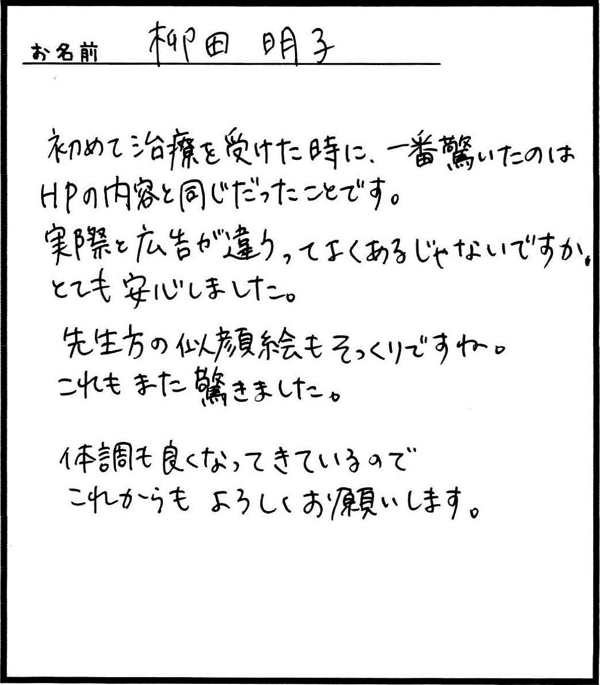 お名前 柳田 明子
初めて治療を受けた時に、一番驚いたのは
HPの内容と同じだったことです。
実際と広告が違うってよくあるじゃないですか。
とても安心しました。
先生方の似顔絵もそっくりですね。
これもまた驚きました。
体調も良くなってきているので
これからもよろしくお願いします。